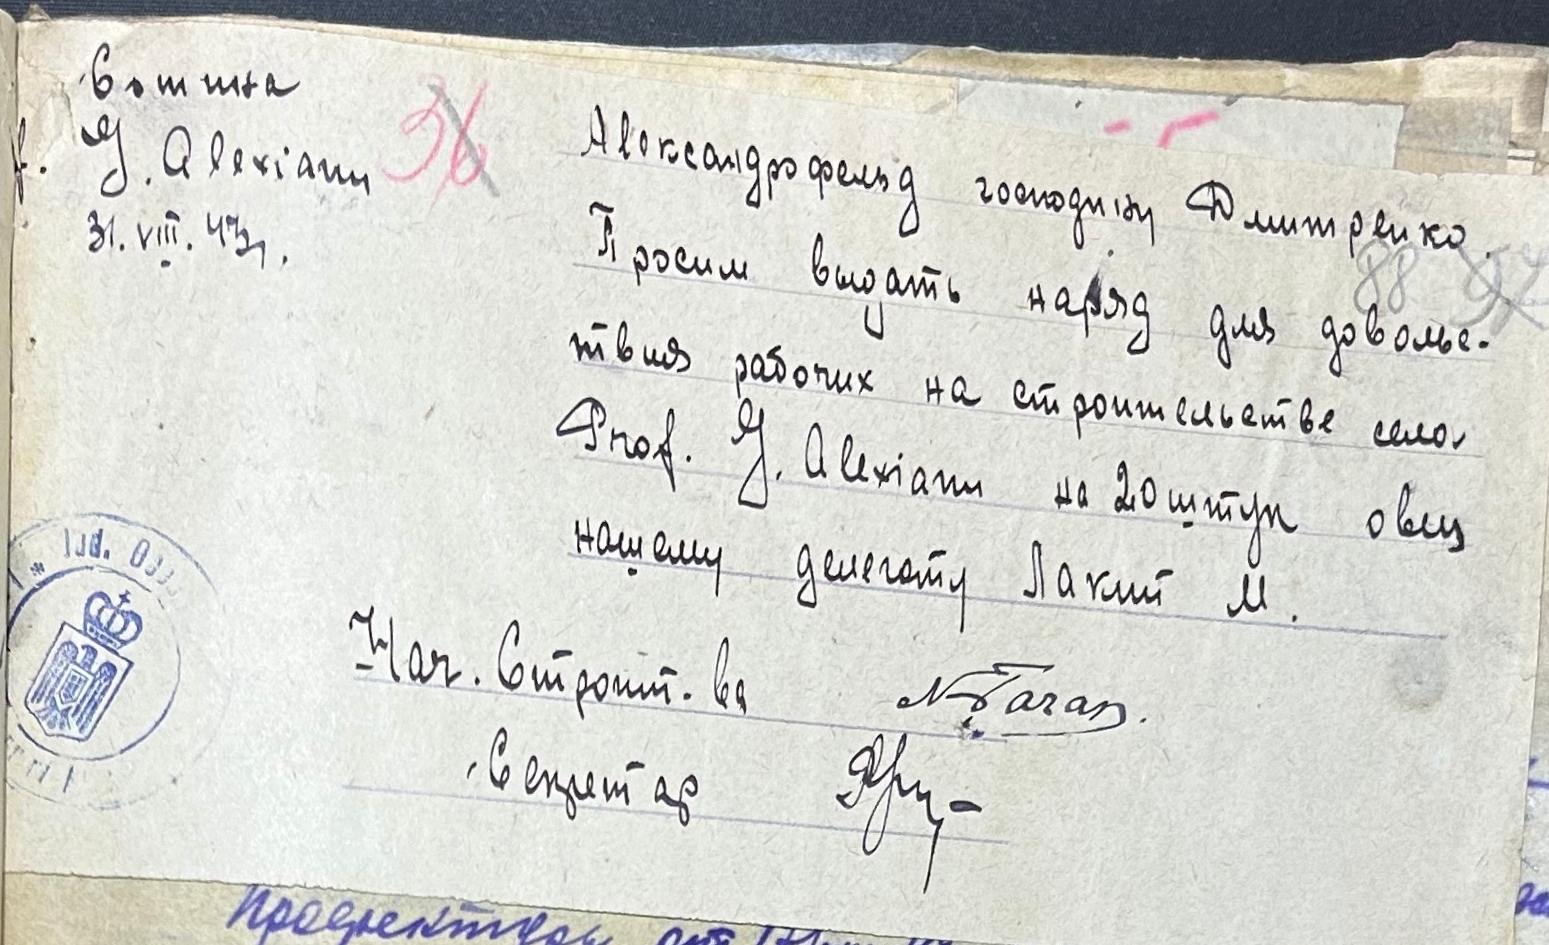 Вотина
f. G. Alexianu
31. VIII. 43 г.
36
Александрофельд господину Дмитренко.
88
Просим выдать наряд для довольс-
твия рабочих на строительстве села
Prof. G. Alexianu на 20 штук овец
нашему делегату Лакит М.
* Jud.
Нач. Строит. ва
Секретар